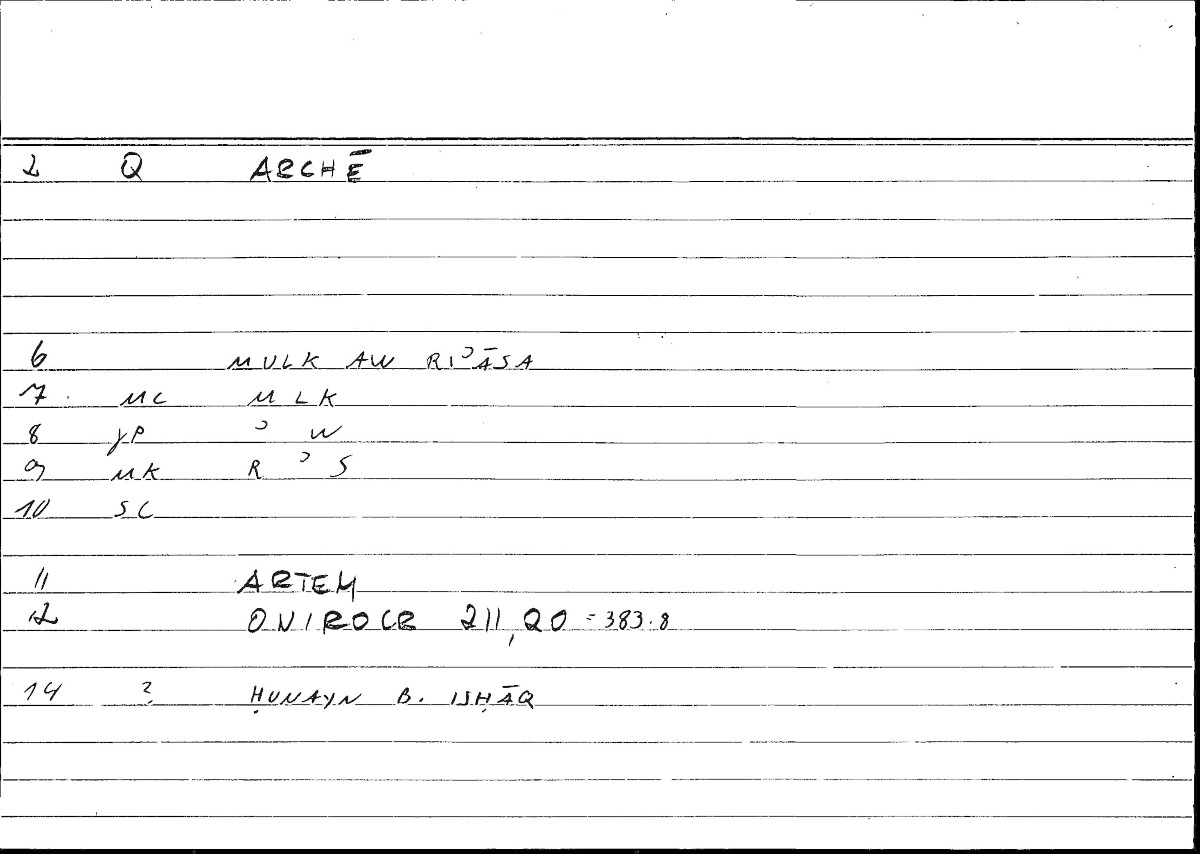 2 Q ARCHĒ
6 MULK AW RIʾĀSA
7 MC MLK
8 yP ʾ W
9 MK R ʾ S
10 SC
11 ARTEM
12 ONIROCR 211,20 = 383.8
14 ? ḤUNAYN B. ISḤĀQ